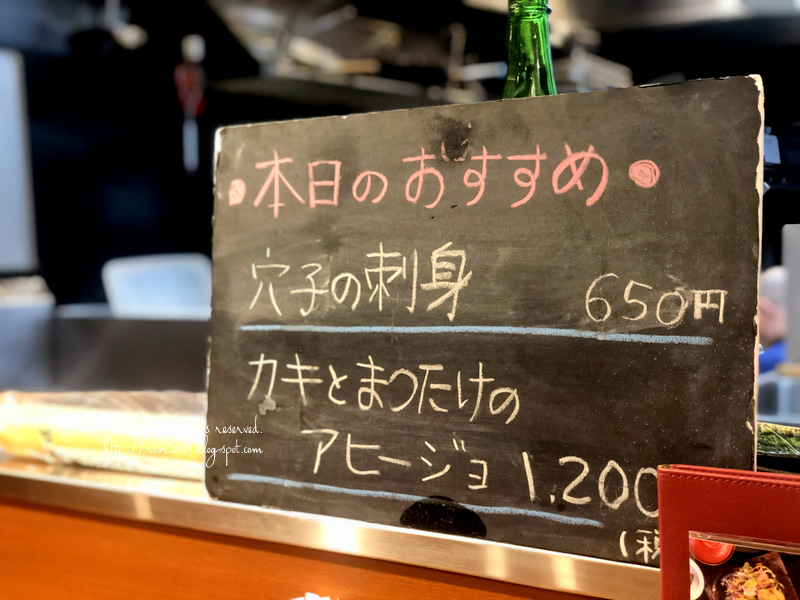 本日のおすすめ
穴子の刺身 650円
カキとまつたけの
アヒージョ 1,200
(税
reserved.